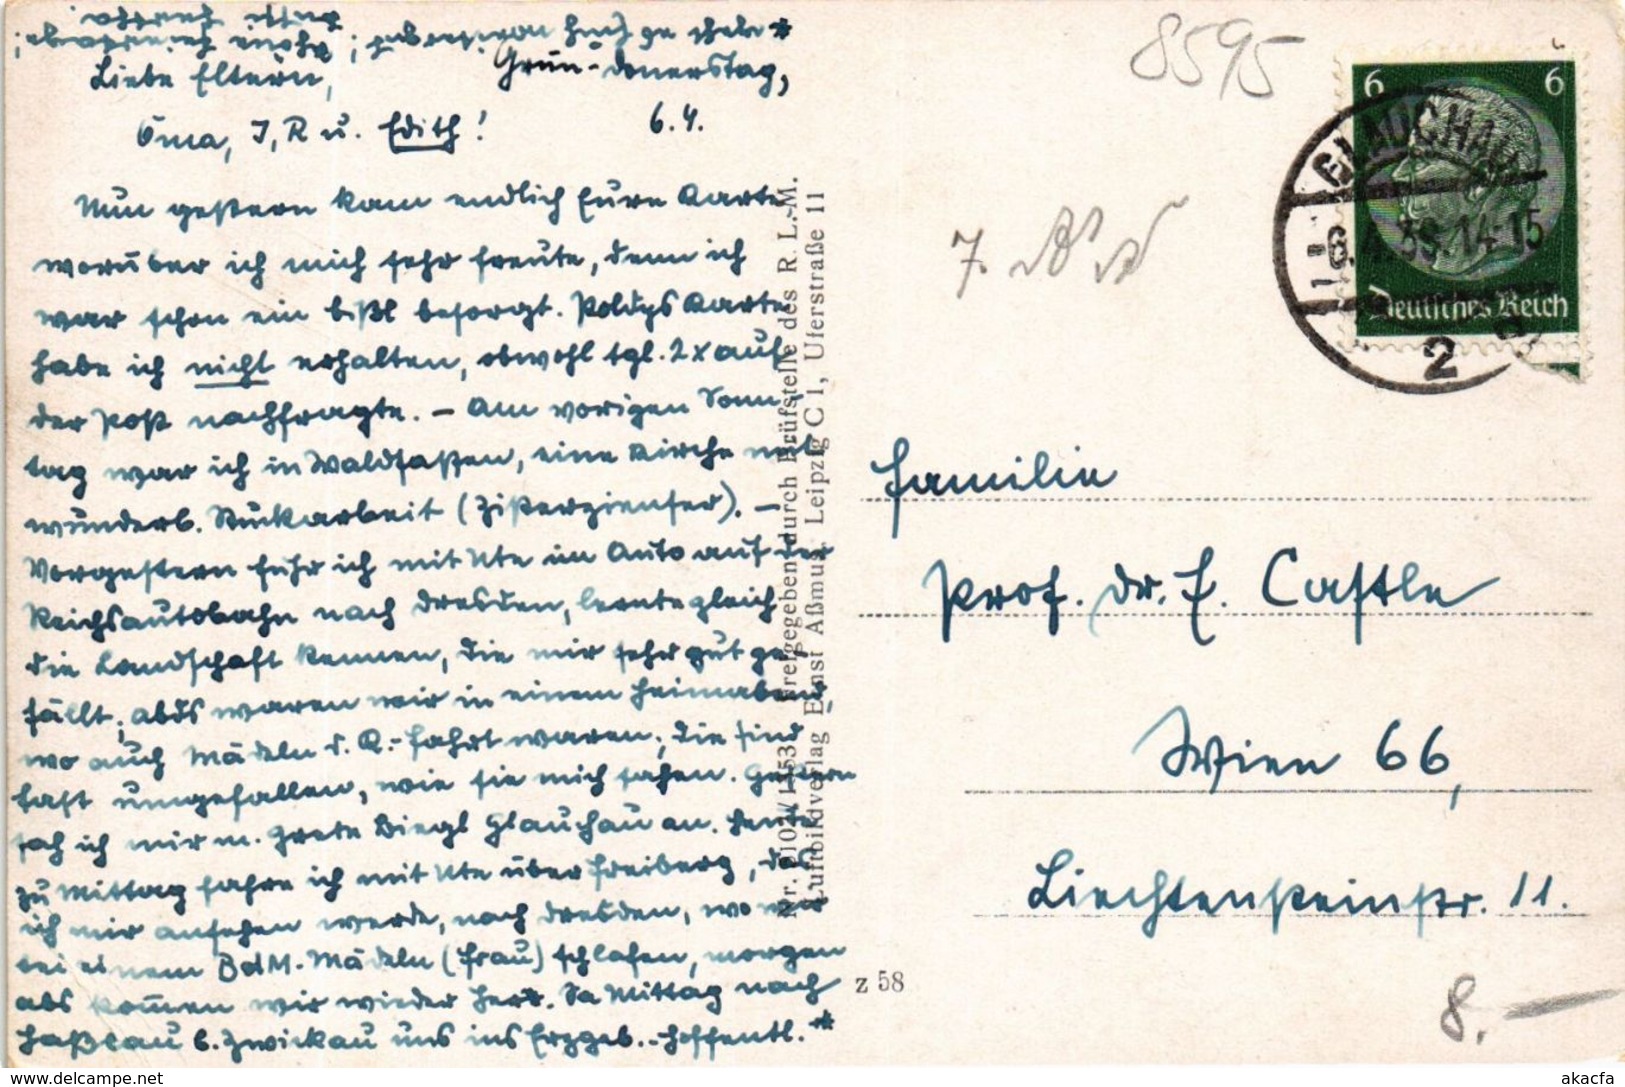 Liebe Eltern,
Grün-Donerstag,
Oma, I, R u. Edith!
6.4.
Nun gestern kam endlich Eure Karte
worüber ich mich sehr freute, denn ich
war schon ein bißl besorgt. Poldys Karte
habe ich nicht erhalten, obwohl tgl. 2x auf
der Post nachfragte. – Am vorigen Sonn-
tag war ich in Waldsassen, eine Kirche mit
wunderb. Stuckarbeit (Zisterzienser). –
Vorgestern fuhr ich mit Ute im Auto auf der
Reichsautobahn nach Dresden, lernte gleich
die Landschaft kennen, die mir sehr gut ge-
fällt, abds waren wir in einem Heimabend,
wo auch Mädeln d. R.-fahrt waren; die sind
fast umgefallen, wie sie mich sahen. Gestern
sah ich mir m. Grete Biegl Glauchau an. Heute
zu Mittag fahre ich mit Ute über Freiberg, das
ich mir ansehen werde, nach Dresden, wo wir
bei einem BdM.-Mädeln (Frau) schlafen, morgen
abs kommen wir wieder her. Sa Mittag nach
Haßlau b. Zwickau uns ins Erzgeb.. Hoffentl.*
Nr. 11153 Freigegeben durch Prüfstelle des R. L.-M.
Luftbildverlag Ernst Aßmus, Leipzig C 1, Uferstraße 11
8595
6 6
Deutsches Reich
GLAUCHAU
6.4.39.14-15
2
7.
Familie
Prof. Dr. E. Castle
Wien 66,
Liechtensteinstr. 11.
z 58
8.–
akacfa
www.delcampe.net